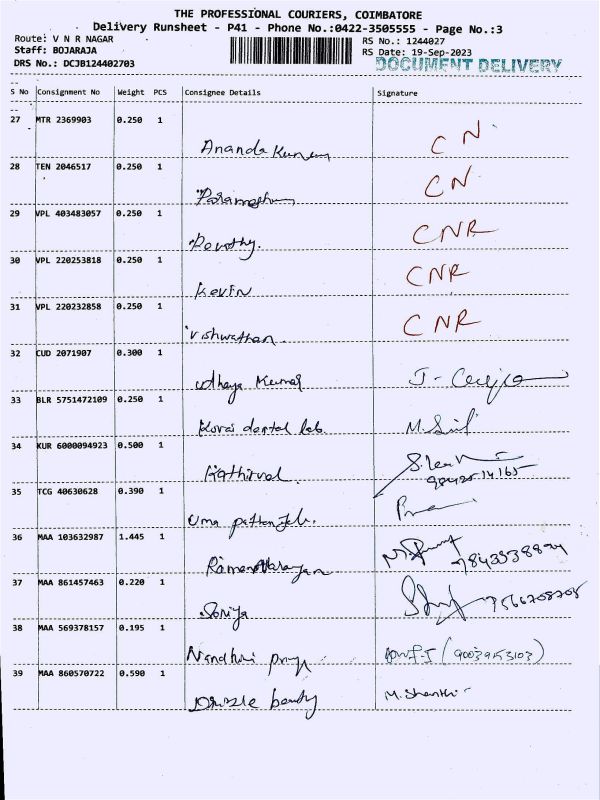 THE PROFESSIONAL COURIERS, COIMBATORE
Delivery Runsheet - P41 - Phone No.:0422-3505555 - Page No.:3
Route: V N R NAGAR RS No.: 1244027
Staff: BOJARAJA RS Date: 19-Sep-2023
DRS No.: DCJB124402703 DOCUMENT DELIVERY
S No Consignment No Weight PCS Consignee Details Signature
27 MTR 2369903 0.250 1
Ananda Kumar C N
28 TEN 2046517 0.250 1
C N
29 VPL 403483057 0.250 1
Dorothy. CNR
30 VPL 220253818 0.250 1
Kevin CNR
31 VPL 220232858 0.250 1
Vishwathan. CNR
32 CUD 2071907 0.300 1
Udhaya Kumar J-
33 BLR 5751472109 0.250 1
dental lab. M.
34 KUR 6000094923 0.500 1
Kathirval.
35 TCG 40630628 0.390 1
Uma
36 MAA 103632987 1.445 1
37 MAA 861457463 0.220 1
Soniya
38 MAA 569378157 0.195 1
Nandhini priya (9003953103)
39 MAA 860570722 0.590 1
Drizzle beauty M. Shanthi